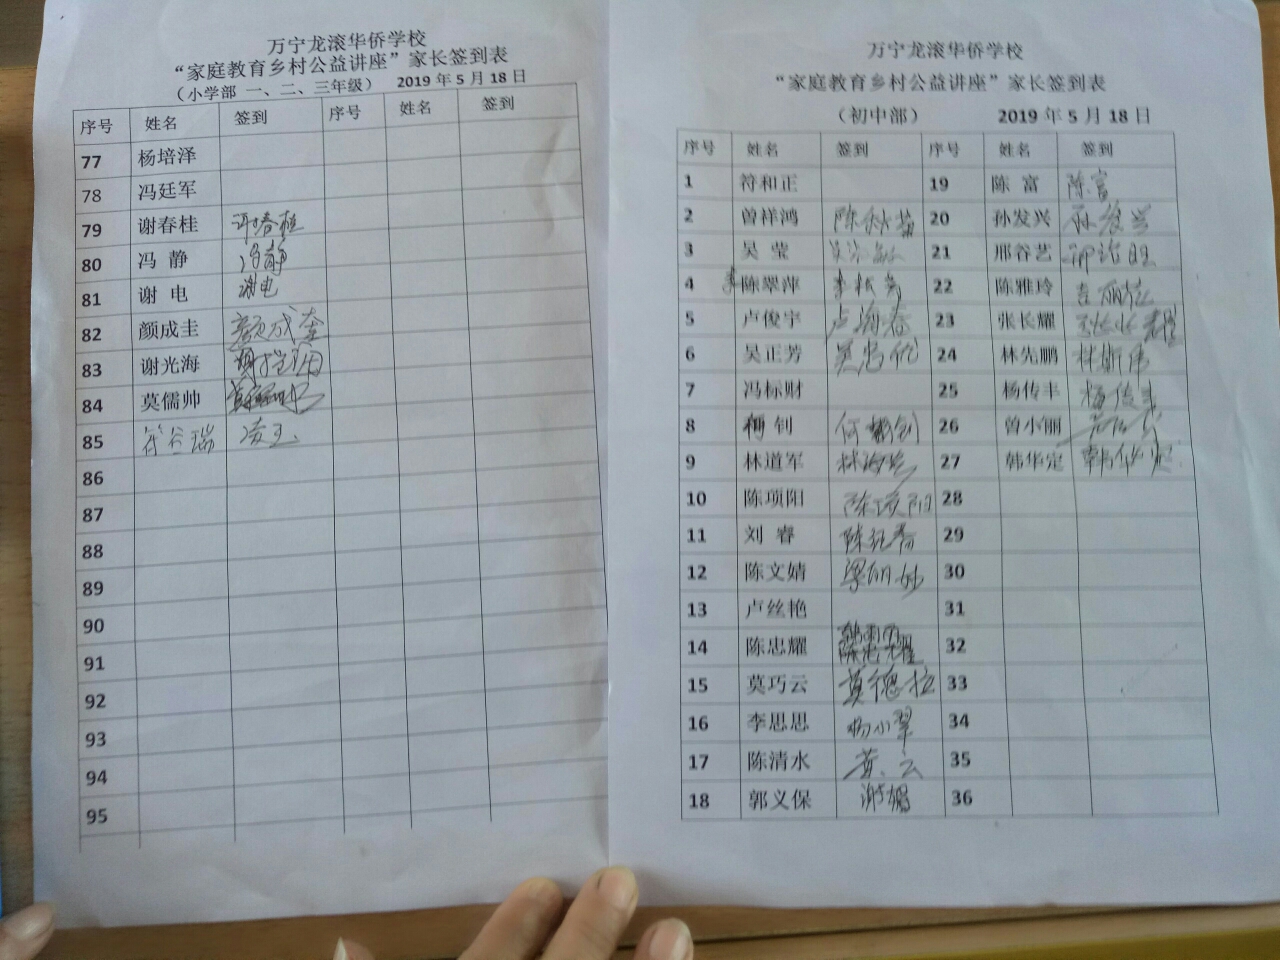 万宁龙滚华侨学校
“家庭教育乡村公益讲座”家长签到表
（小学部 一、二、三年级） 2019 年 5 月 18 日
序号 姓名 签到 序号 姓名 签到
77 杨培泽
78 冯廷军
79 谢春桂 许春桂
80 冯 静 冯静
81 谢 电 谢电
82 颜成圭 颜成奎
83 谢光海
84 莫儒帅
85 符谷瑞 凌玉
86
87
88
89
90
91
92
93
94
95
万宁龙滚华侨学校
“家庭教育乡村公益讲座”家长签到表
（初中部） 2019 年 5 月 18 日
序号 姓名 签到 序号 姓名 签到
1 符和正 19 陈 富 陈富
2 曾祥鸿 陈秋菊 20 孙发兴 孙发兴
3 吴 莹 21 邢谷艺
4 陈翠萍 22 陈雅玲
5 卢俊宇 卢海春 23 张长耀 张长耀
6 吴正芳 吴忠优 24 林先鹏 林斯伟
7 冯标财 25 杨传丰 杨传丰
8 何 钊 何 钊 26 曾小丽
9 林道军 27 韩华定 韩华定
10 陈项阳 陈项阳 28
11 刘 睿 29
12 陈文婧 30
13 卢丝艳 31
14 陈忠耀 陈忠耀 32
15 莫巧云 莫德拉 33
16 李思思 杨小翠 34
17 陈清水 黄云 35
18 郭义保 36